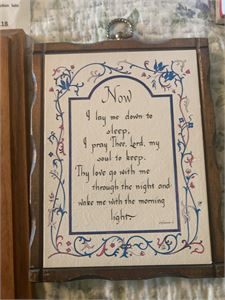 18
Now
I lay me down to
sleep,
I pray Thee, Lord, my
soul to keep.
Thy love go with me
through the night and
wake me with the morning
light.